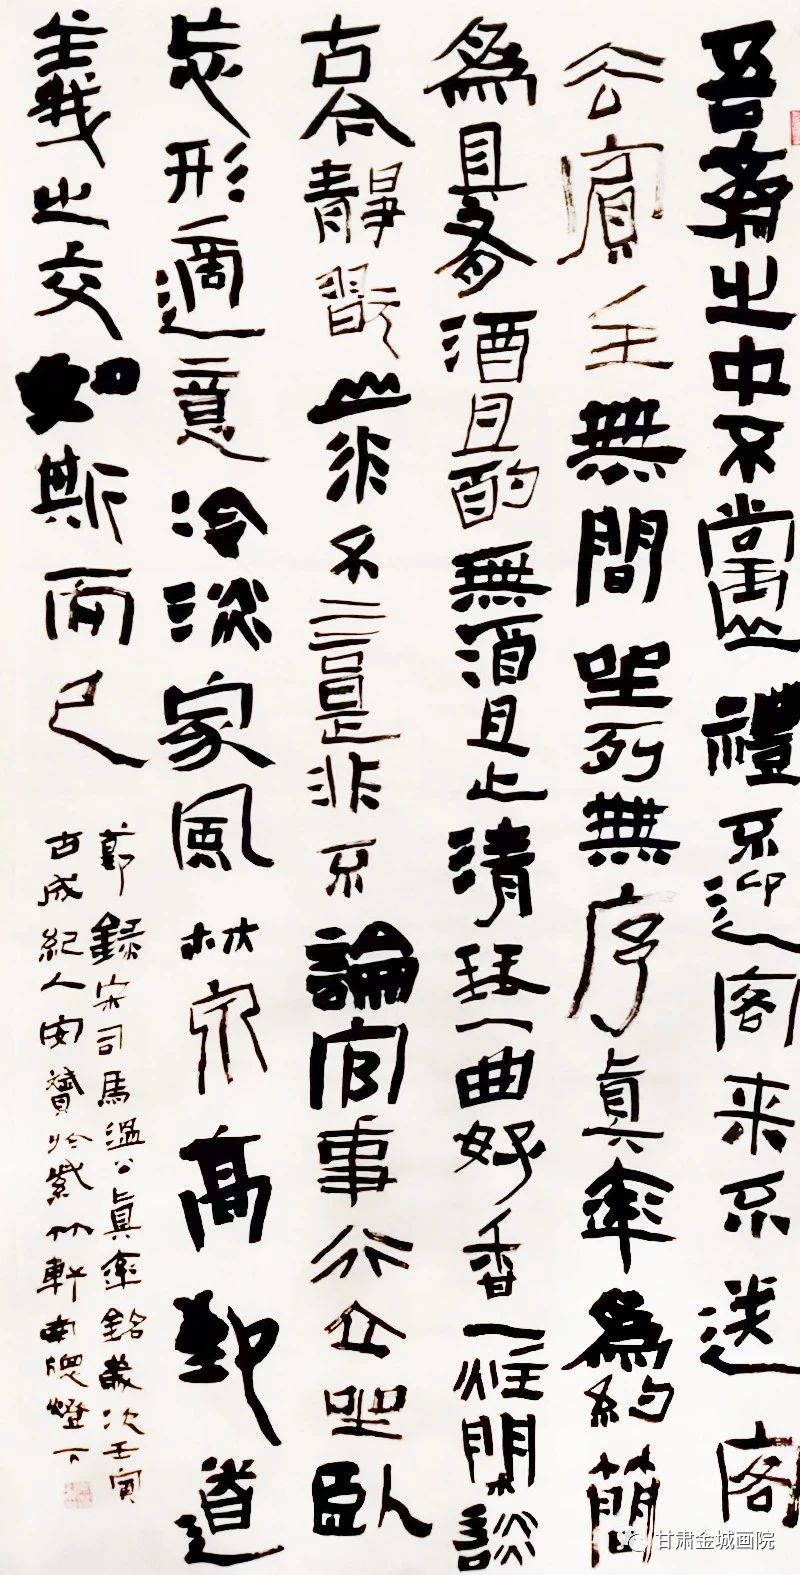 吾齋之中不尚虛禮不迎客来不送客
去賓主無間坐列無序真率為約簡
為具有酒且酌無酒且止清琴一曲好香一炷閑談
古今靜翫山水不言是非不論官事行立坐臥
忘形適意冷淡家風林泉高致道
義之交如斯而已
節錄宋司馬溫公真率銘歲次壬寅
古成紀人安贇於紫竹軒南窗燈下
甘肃金城画院